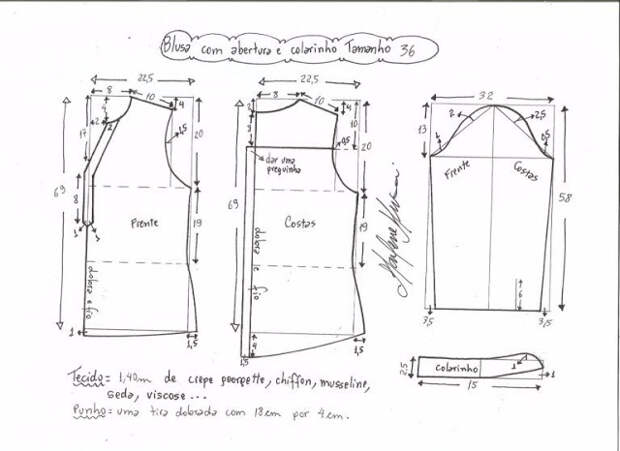 Blusa com abertura e colarinho Tamanho 36
22,5
8
10
4
4
2
2
17
1,5
20
69
8
1
3
Frente
19
dobra e fio
1
1,5
22,5
8
10
2
4
8
0,5
20
dar uma
preguinha
69
Costas
19
dobra e fio
4
1,5
1,5
32
2
2,5
13
1
0,5
Frente
Costas
58
6
3,5
3,5
2,5
colarinho
1
1
15
Tecido = 1,40m de crepe georgette, chiffon, musseline,
seda, viscose...
Punho = uma tira dobrada com 18cm por 4cm.